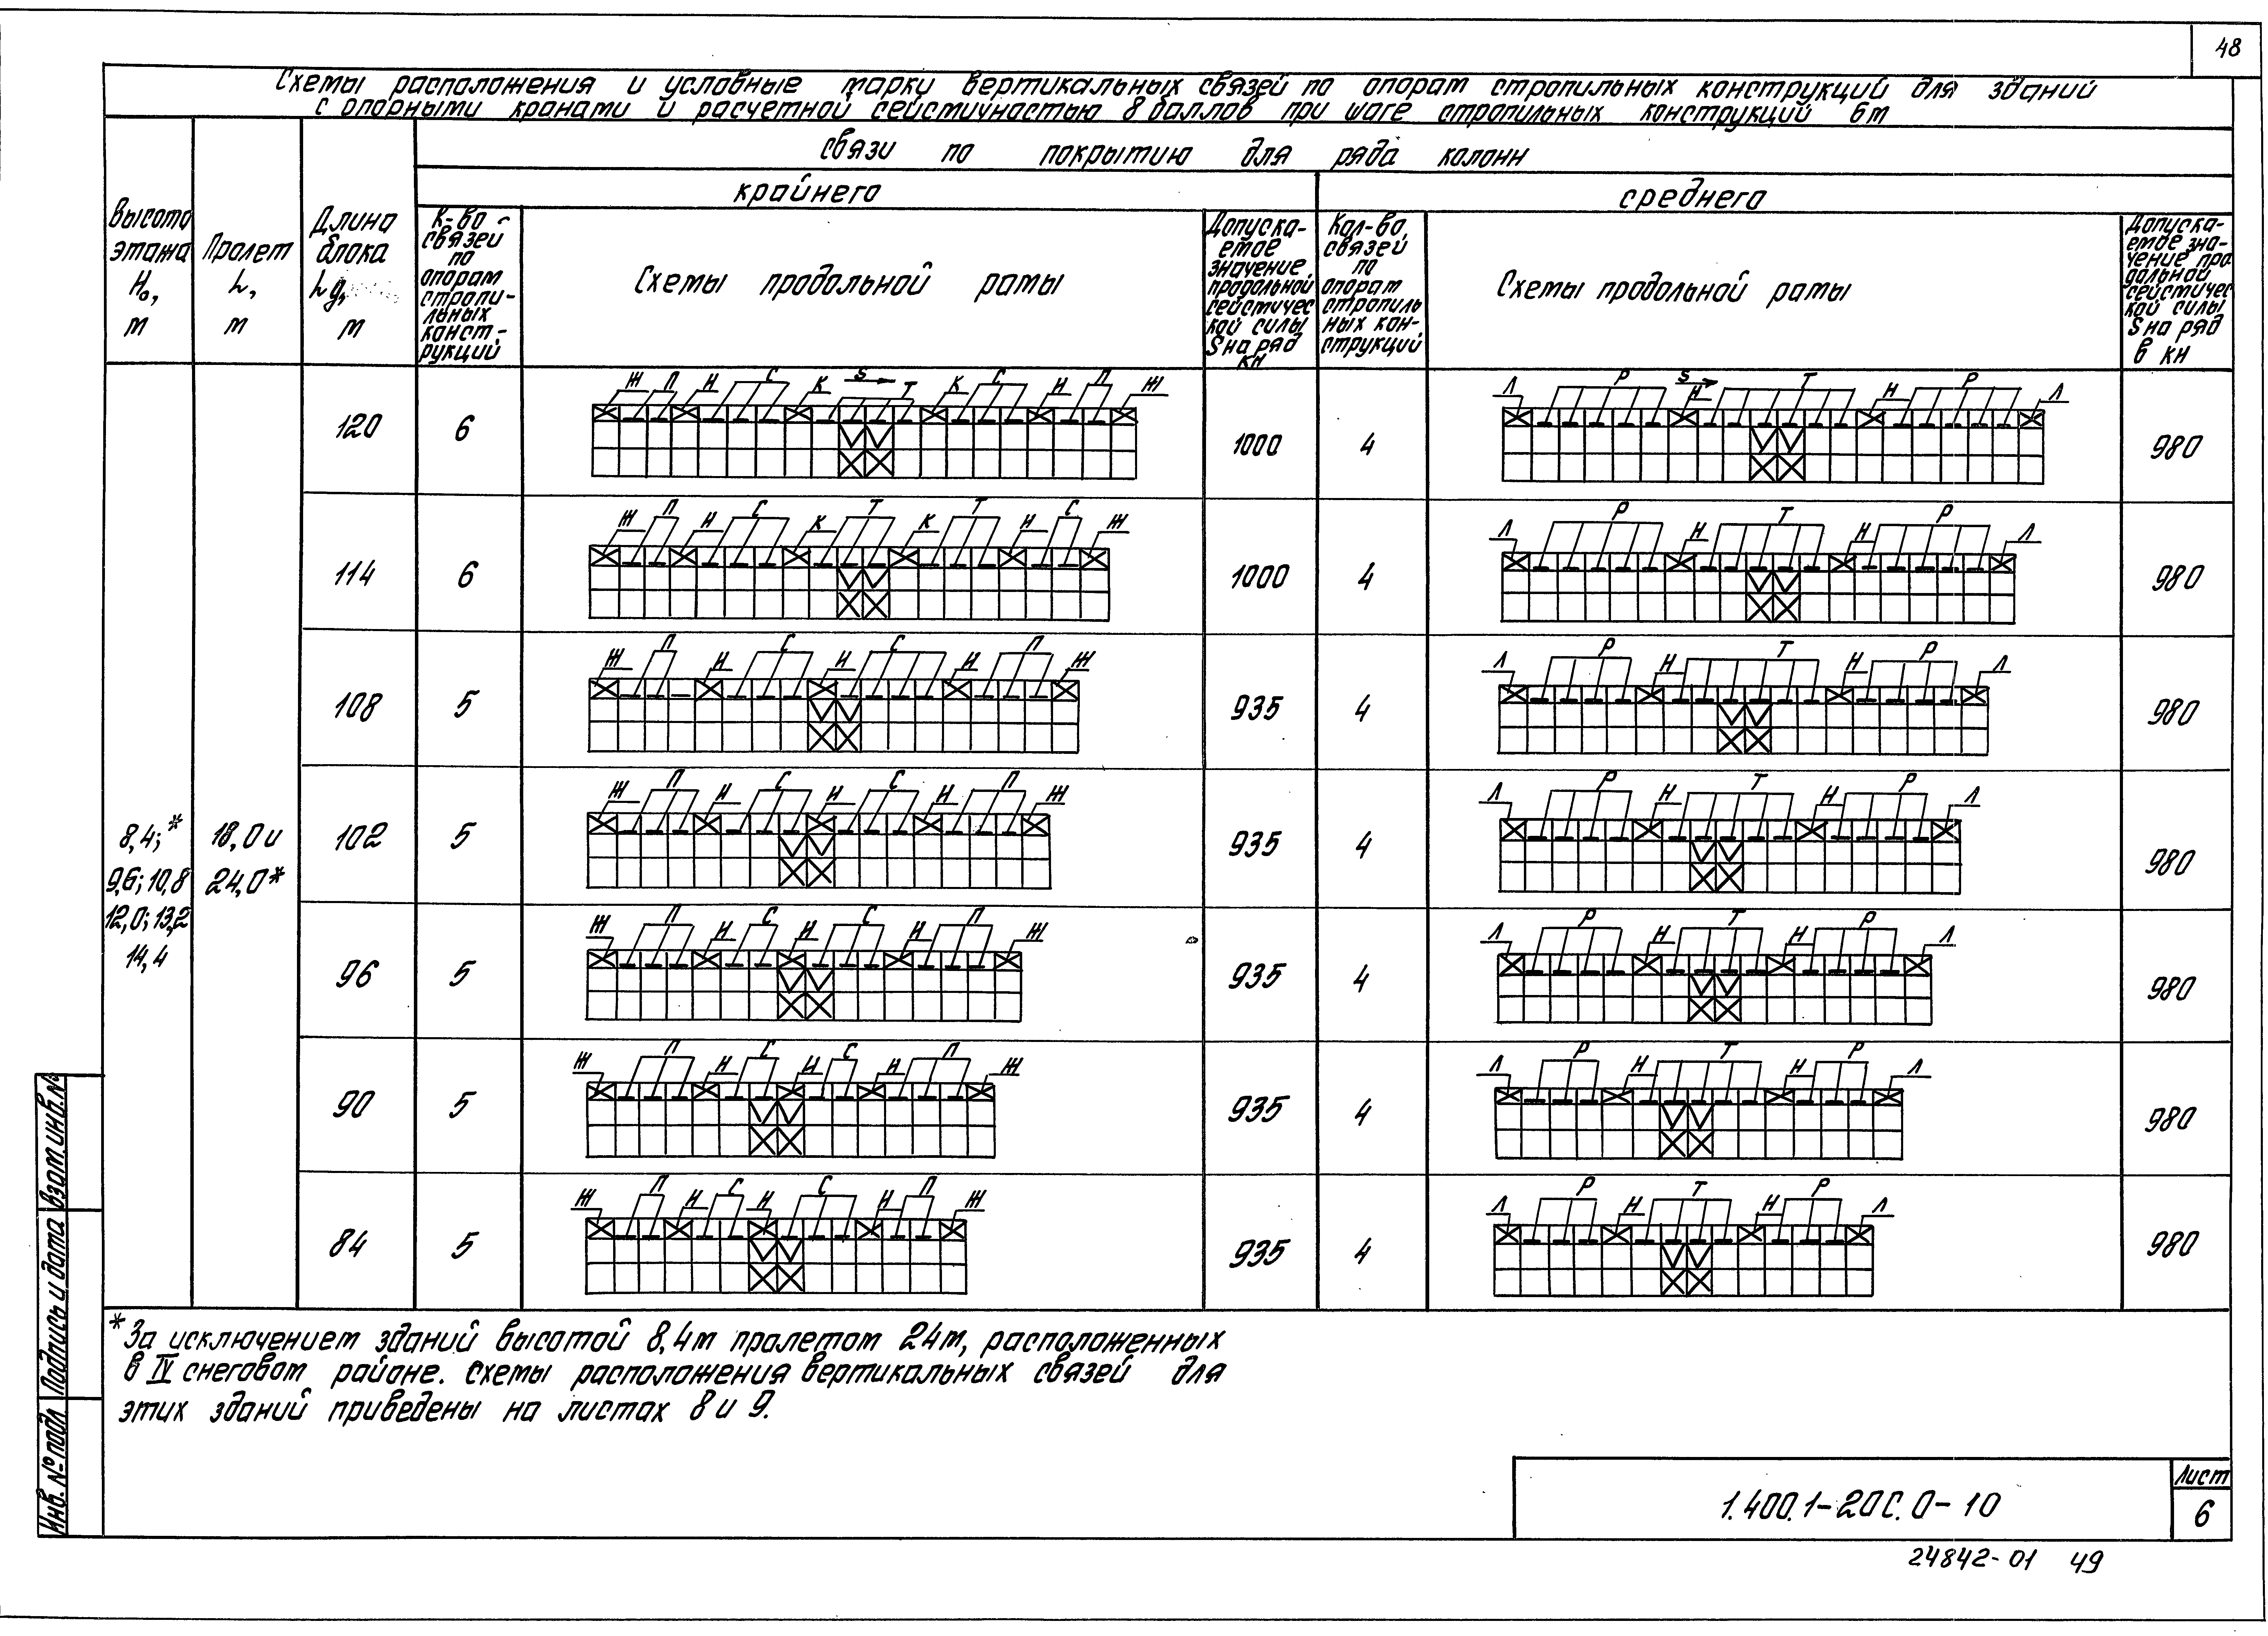 48
Схемы расположения и условные марки вертикальных связей по опорам стропильных конструкций для зданий
с опорными кранами и расчетной сейсмичностью 8 баллов при шаге стропильных конструкций 6м
Высота
этажа
Н₀,
м
Пролет
L,
м
Длина
блока
Lд,
м
связи по покрытию для ряда колонн
крайнего
среднего
К-во
связей
по
опорам
стропи-
льных
конст-
рукций
Схемы продольной рамы
Допуска-
емое
значение
продольной
сейсмичес
кой силы
S на ряд
кн
Кол-во
связей
по
опорам
стропиль
ных кон-
струкций
Схемы продольной рамы
Допуска-
емое зна-
чение про
дольной
сейсмичес
кой силы
S на ряд
в кн
8,4;*
9,6; 10,8
12,0; 13,2
14,4
18,0 и
24,0*
120
6
Ж П Н С К S Т К С Н П Ж
1000
4
Л Р S Н Т Н Р Л
980
114
6
Ж П Н С К Т К Т Н С Ж
1000
4
Л Р Н Т Н Р Л
980
108
5
Ж П Н С Н С Н П Ж
935
4
Л Р Н Т Н Р Л
980
102
5
Ж П Н С Н С Н П Ж
935
4
Л Р Н Т Н Р Л
980
96
5
Ж П Н С Н С Н П Ж
935
4
Л Р Н Т Н Р Л
980
90
5
Ж П Н С Н С Н П Ж
935
4
Л Р Н Т Н Р Л
980
84
5
Ж П Н С Н С Н П Ж
935
4
Л Р Н Т Н Р Л
980
*За исключением зданий высотой 8,4м пролетом 24м, расположенных
в IV снеговом районе. Схемы расположения вертикальных связей для
этих зданий приведены на листах 8 и 9.
Инв. № подл.
Подпись и дата
Взам. инв. №
1.400.1-20С.0-10
Лист
6
24842-01 49